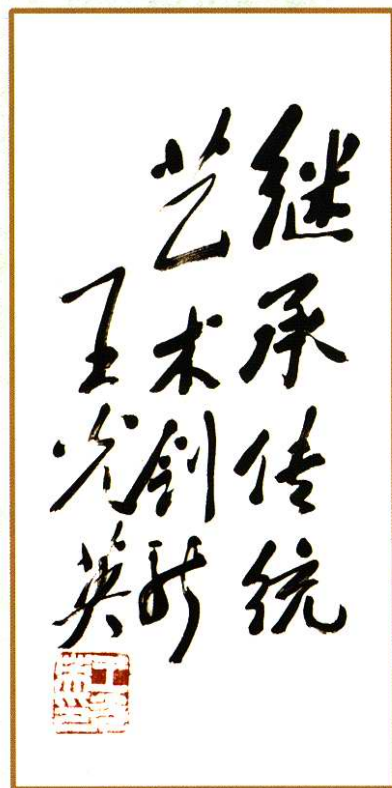 继承传统
艺术创新
王光英